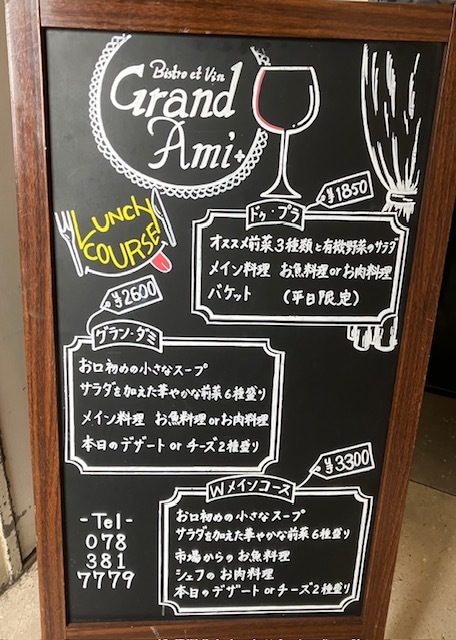 Bistro et Vin
Grand
Ami
LUNCH
COURSE
¥1850
ドゥ・プラ
オススメ前菜3種類と有機野菜のサラダ
メイン料理 お魚料理orお肉料理
バケット (平日限定)
¥2600
グラン・ダミ
お口初めの小さなスープ
サラダを加えた華やかな前菜6種盛り
メイン料理 お魚料理orお肉料理
本日のデザートorチーズ2種盛り
¥3300
Wメインコース
お口初めの小さなスープ
サラダを加えた華やかな前菜6種盛り
市場からのお魚料理
シェフのお肉料理
本日のデザートorチーズ2種盛り
-Tel-
078
381
7779